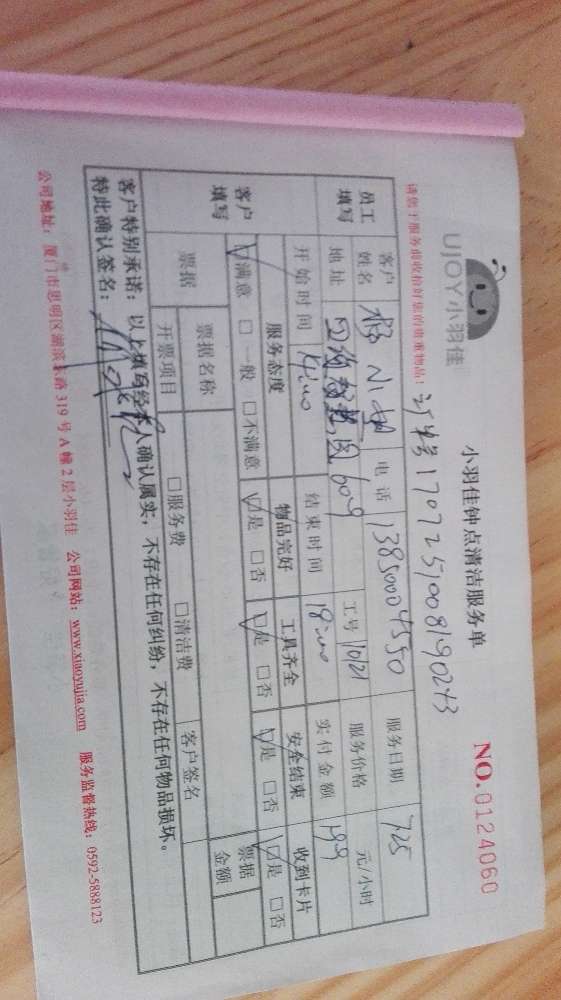 UJOY小羽佳
小羽佳钟点清洁服务单
NO.0124060
请您于服务前收拾好您的贵重物品!
订单号1707251008190243
员工填写
客户姓名
电话 13850004550
服务日期 7.25
地址
609
工号 10121
服务价格 元/小时
开始时间 14:00
结束时间 18:00
实付金额 199
客户填写
服务态度 物品完好 工具齐全 安全结束 收到卡片
☑满意 □一般 □不满意 ☑是 □否 ☑是 □否 ☑是 □否 ☑是 □否
票据
票据名称
票据金额
开票项目 □服务费 □清洁费 客户签名
客户特别承诺:以上填写经本人确认属实,不存在任何纠纷,不存在任何物品损坏。
特此确认签名:
公司地址:厦门市思明区湖滨东路319号A幢2层小羽佳 公司网站:www.xiaoyujia.com 服务监督热线:0592-5888123